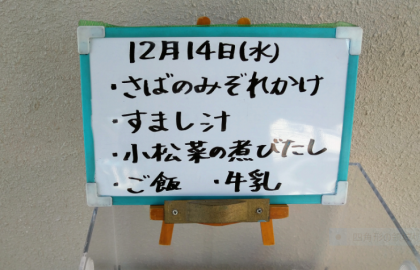 12月14日(水)
・さばのみぞれかけ
・すまし汁
・小松菜の煮びたし
・ご飯 ・牛乳